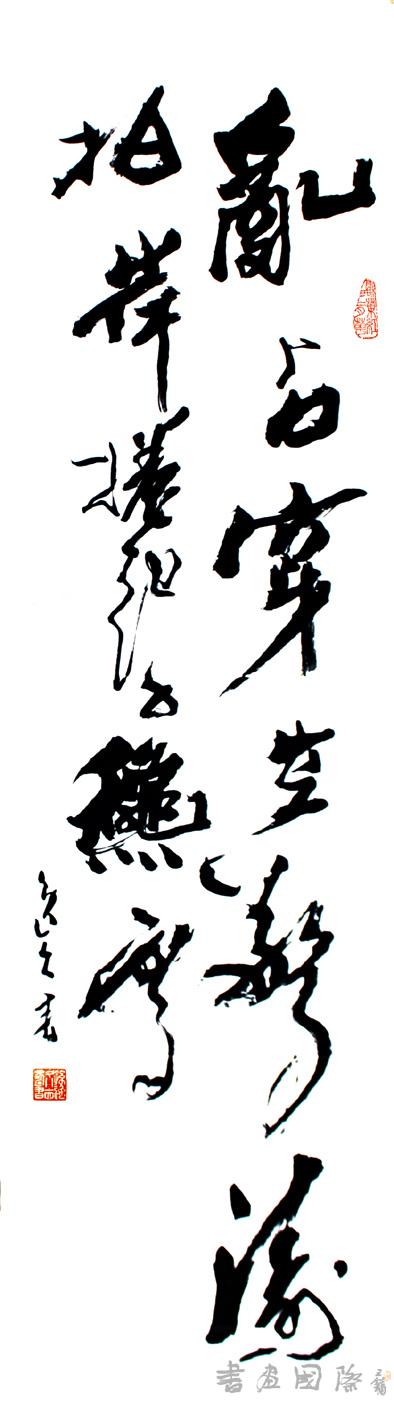 亂石穿空驚濤
拍岸捲起千堆雪
書畫國際